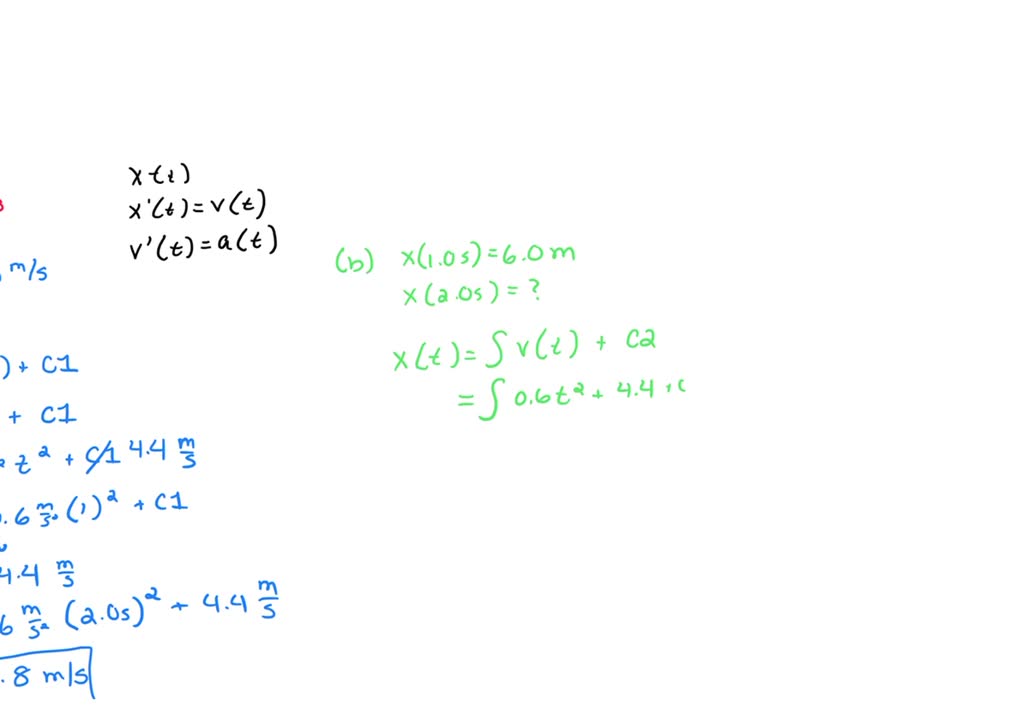 x(t)
x'(t) = v(t)
v'(t) = a(t)
m/s
) + C1
+ C1
t² + C1 4.4 m/s
.6 m/s² (1)² + C1
4.4 m/s
6 m/s² (2.0s)² + 4.4 m/s
.8 m/s
(b) x(1.0s) = 6.0m
x(2.0s) = ?
x(t) = ∫ v(t) + C2
= ∫ 0.6t² + 4.4 + C